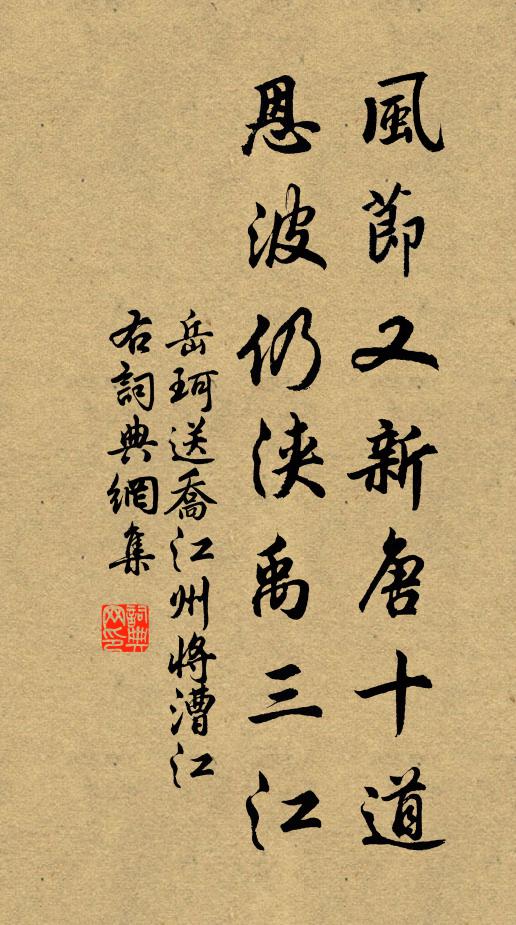 風節又新唐十道
恩波仍浹禹三江
岳珂送喬江州將漕江
右詞典網集
詞典
网印